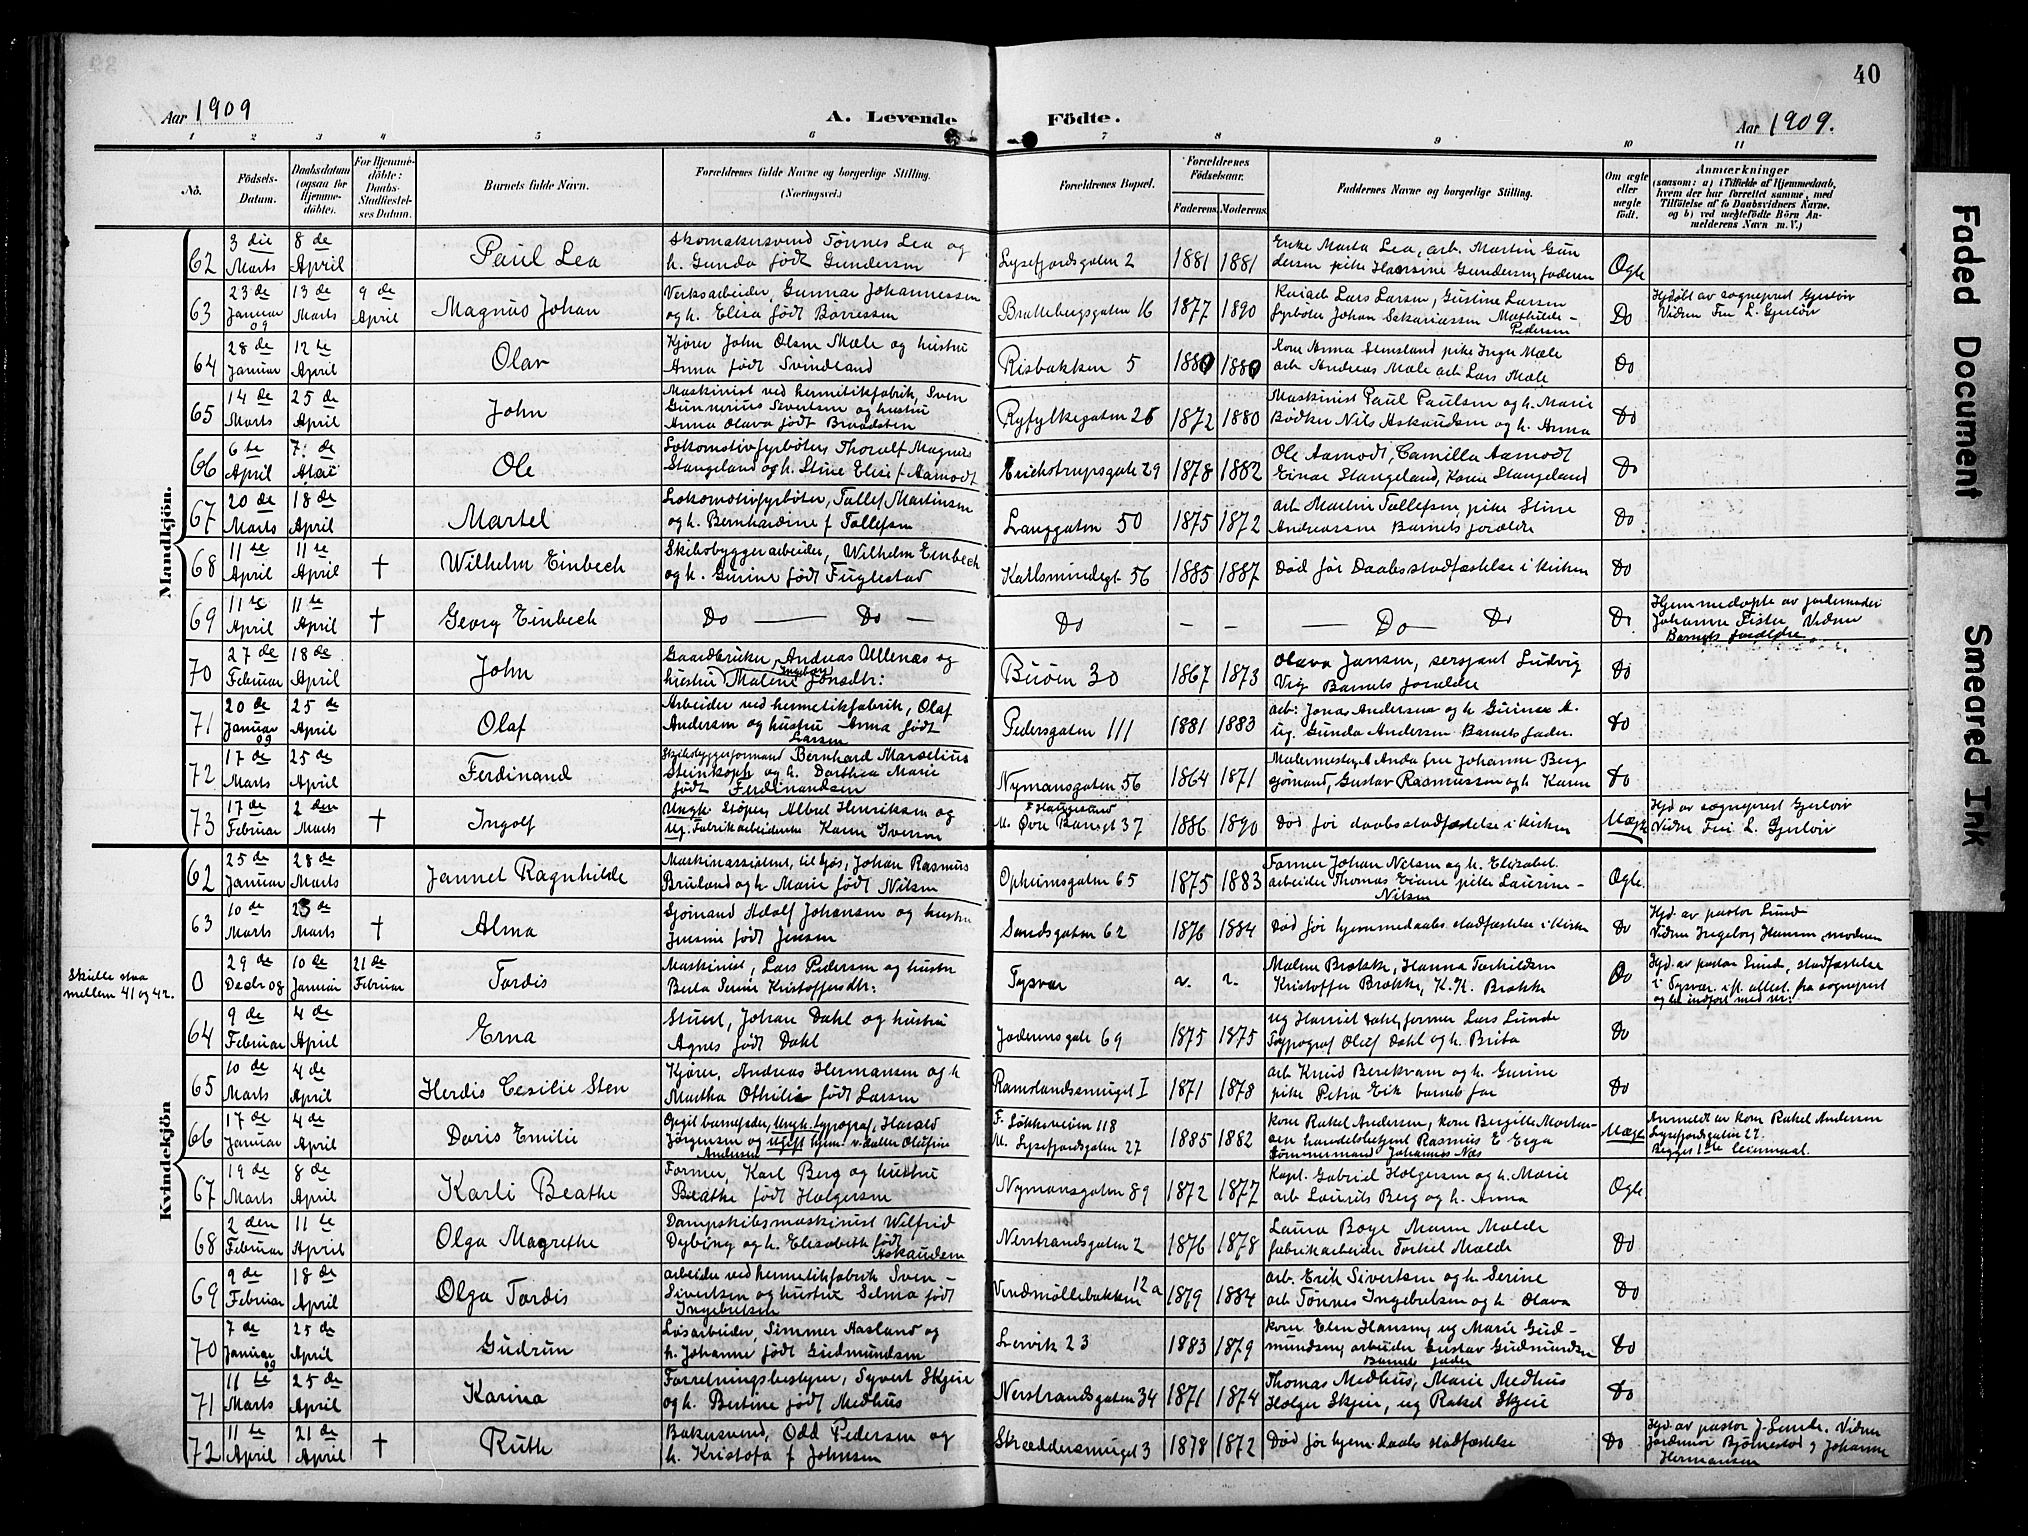 40
Aar 1909
A. Levende Födte.
Aar 1909.
1 2 3 4 5 6 7 8 9 10 11
No. Födsels-Datum. Daabsdatum (ogsaa för Hjemmedöbte). For Hjemmedöbte: Daabs-Stadfæstelses Datum. Barnets fulde Navn. Forældrenes fulde Navne og borgerlige Stilling. (Næringsvei.) Forældrenes Bopæl. Forældrenes Födselsaar. Faderens. Moderens. Faddernes Navne og borgerlige Stilling. Om ægte eller uægte födt. Anmærkninger
(saasom: a) i Tilfælde af Hjemmedaab, hvem der har forrettet samme, med Tilföielse af to Daabsvidners Navne, og b) ved uægtefödte Börn Anmelderens Navn m. V.)
Mandkjön.
62 3die Marts 8de April Paul Lea Skomakersvend Tønnes Lea og h. Gunda født Gundersen Lysefjordsgaten 2 1881 1881 Enke Marta Lea, arb. Martin Gundersen pike Hansine Gundersen, faderen Ogle
63 23de Januar 09 13de Marts 9de April Magnus Johan Verksarbeider, Gunnar Johannessen og h. Elisa født Børressen Brattebergsgaten 16 1877 1890 Lars Larsen, Gustine Larsen fyrbøter Johan Sakariassen Mathilde Pedersen Do Hjdøbt av sogneprest Gjerløv Vidner Fru L. Gjerløv
64 28de Januar 12te April Olav Kjører John Olsen Mæle og hustru Anna født Svindland Risbakken 5 1880 1880 Kone Anna pike Inger Mæle arb Andreas Mæle arb Lars Mæle Do
65 14de Marts 25de April John Maskinist ved hermetikfabrik, Sven Gunnerius Sivertsen og hustru Anna Olava født Braadsten Ryfylkegaten 26 1872 1880 Maskinist Paul Paulsen og h. Marie Bødker Nils Askaudsen og h. Anna Do
66 6te April 7:de Ole Lokomotivfyrbøter Thoralf Magnus Stangeland og h. Stine Elise f Aamodt Erichstrupsgate 29 1878 1882 Ole Aamodt, Camilla Aamodt Einar Stangeland, Karen Stangeland Do
67 20de Marts 18de April Martel Lokomotivfyrbøter, Tollef Martinsen og h. Bernhardine f Tollefsen Langgaten 50 1875 1872 arb Martin Tollefsen, pike Stine Andreassen Barnets forældre Do
68 11te April 11te April † Wilhelm Einbech Skibsbyggerarbeider, Wilhelm Einbech og h. Gurine født Fuglestad Karlsmindegt 56 1885 1887 Død før Daabsstadfæstelse i kirken Do
69 11te April 11te April † Georg Einbech Do — Do — Do — — — Do — Do Do Hjemmedøpte av jordemoder Johanne Fister, Vidner Barnets forældre
70 27de Februar 18de April John Gaardbruker Andreas Attenæs og hustru Malene Ingeborg Jonsdtr: Buøen 30 1867 1873 Olava Jansen, sersjant Ludvig Vig Barnets forældre Do
71 20de Januar 09 25de April Olaf Arbeider ved hermetikfabrik, Olaf Andersen og hustru Anna født Larsen Pedersgaten 111 1881 1883 arb: Jonas Andersen og h Gurine A. ug. Gunda Andersen Barnets fader. Do
72 17de Marts 25de April Ferdinand Skibsbyggerformand Bernhard Marselius Steinkoph og h. Dorthea Marie født Ferdinandsen Nymansgaten 56 1864 1871 Johanne Berg sjømand, Gustav Rasmussen og h. Karen Do
73 17de Februar 2den Marts † Ingolf Ungk. Støper, Albret Henriksen og Ug. Fabrikarbeiderske Karen Iversen F. Haugesund M. Øvre Bansgt 37 1886 1890 Død før daabsstadfæstelse i kirken Uægte Hjd av sogneprest Gjerløv Vidner Fru L. Gjerløv
Kvindekjön
62 25de Januar 28de Marts Jannet Ragnhilde Maskinassistent, til sjøs, Johan Rasmus Bruland og h. Marie født Nilsen Opheimsgaten 65 1875 1883 Former Johan Nilsen og h. Elizabet arbeider Thomas Eiane pike Laurine Nilsen Ogle.
63 10de Marts 23de Marts † Alma Sjømand Adolf Johansen og hustru Jensine født Jensen Sandsgaten 62 1876 1884 Død før hjemmedaabs stadfæstelse i kirken Do Hjd. av pastor Lund Vidner Ingeborg Hansen, moderen
Skulle staa mellem 41 og 42. 0 29de Decbr 08 10de Januar 21de Februar Tordis Maskinist, Lars Pedersen og hustru Berta Serine Kristoffersdtr: Tysvær r. r. Malene Brække, Hanna Torkildsen Kristoffer Brække, K.K. Brække Do Hjd. av pastor Lund, stadfæstelse i Tysvær ifl. attest fra sogneprest og bl indført med nr:
64 9de Februar 4de April Erna Stuert, Johan Dahl og hustru Agnes født Dahl Jæderensgate 69 1875 1875 ug Harriet Dahl, former Lars Lunde Typograf Olaf Dahl og h. Brita Do
65 10de Marts 4de April Herdis Cesilie Sten Kjører, Andreas Hermansen og h Martha Othilie født Larsen Ramslandssmuget I 1871 1878 arb Knud Berekvam og h. Gurine pike Petra Eik barnets far Do
66 17de Januar 4de April Doris Emilie Opgit barnefader, Ungk. typograf, Harald Jørgensen og ugift hjem. v. datter Olufine Andersen F. Løkkeveien 118 M. Lysefjordsgaten 27 1885 1882 kone Rakel Andersen, kone Bergitte Mortensen handelsbetjent Rasmus E Erga tømmermand Johannes Næs Uægte Anmeldt av kone Rakel Andersen Lysefjordsgaten 27. Begges 1ste leiermaal.
67 19de Marts 8de April Karli Beathe Former, Karl Berg og hustru Beathe født Holgersen Nymansgaten 89 1872 1877 Kapt. Gabriel Holgersen og h. Marie arb Laurits Berg og h. Anna Ogle
68 2den Februar 11te April Olga Magrethe Dampskibsmaskinist Wilfrid Dybing og h. Elisabeth født Askaudsen Nerstrandsgaten 2 1876 1878 Laura Boye Maren Molde fabrikarbeider Torkel Molde Do
69 9de Februar 18de April Olga Tordis arbeider ved hermetikfabrik Sven Sivertsen og hustru Selma født Ingebretsen Vindmøllebakken 12a 1879 1884 arb. Erik Sivertsen og h. Serine arb Tønnes Ingebretsen og h. Olava Do
70 7de Januar 09 25de April Gudrun Løsarbeider, Simmer Aasland og h. Johanne født Gudmundsen Lervik 23 1883 1879 kone Elen Hansen, ug Marie Gudmundsen, arbeider Gustav Gudmundsen Barnets fader Do
71 11te Marts 25de April Karina Forretningsbestyrer, Syvert Skjeie og h. Bertine født Medhus Nerstrandsgaten 34 1871 1874 Thomas Medhus, Marie Medhus Holger Skjeie, ug Rakel Skjeie Do
72 11te April 21de April † Ruth Bakersvend, Odd Pedersen og h. Kristofa f Johnsen Skræddersmuget 3 1878 1872 Død før hjem. daabs stadfæstelse Do Hjd. av pastor J. Lunde. Vidner Jordmor Bjørnestad og Johanne Hermansen
Faded Document
Smeared Ink